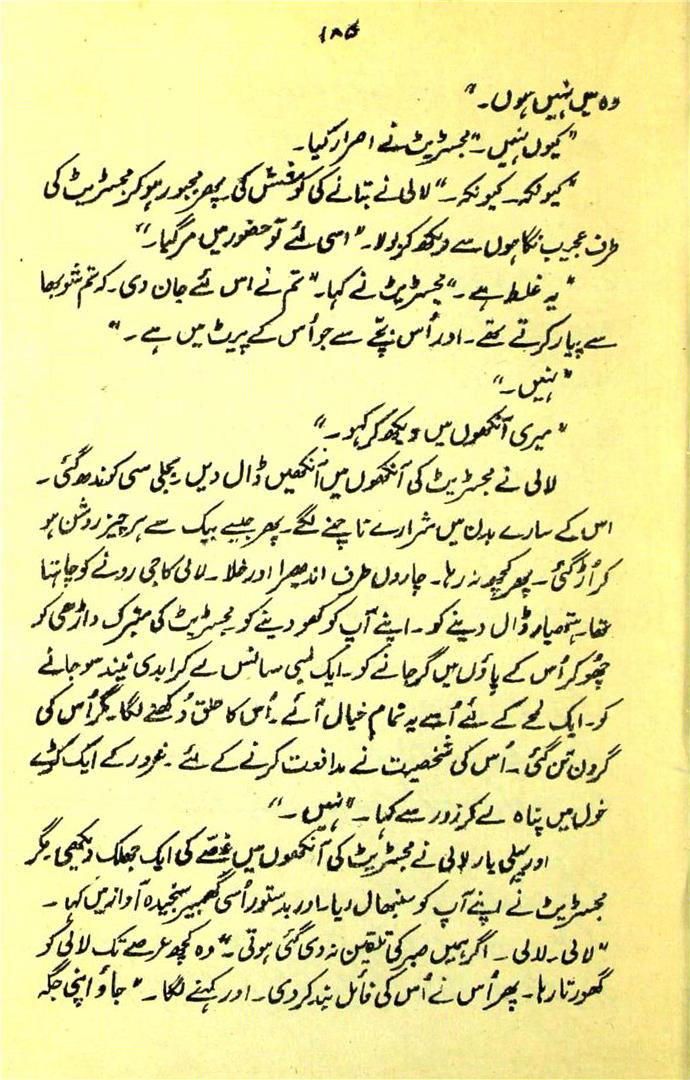 ۱۸۵
وہ میں نہیں ہوں۔"
"کیوں نہیں۔" مجسٹریٹ نے اصرار کیا۔
"کیونکہ۔ کیونکہ۔" لالی نے بتانے کی کوشش کی۔ پھر مجبور ہو کر مجسٹریٹ کی
طرف عجیب نگاہوں سے دیکھ کر بولا۔ "اسی لئے تو حضور میں مر گیا۔"
"یہ غلط ہے۔" مجسٹریٹ نے کہا۔ "تم نے اس لئے جان دی۔ کہ تم شوبھا
سے پیار کرتے تھے۔ اور اُس بچّے سے جو اُس کے پیٹ میں ہے۔"
"نہیں۔"
"میری آنکھوں میں دیکھ کر کہو۔"
لالی نے مجسٹریٹ کی آنکھوں میں آنکھیں ڈال دیں۔ بجلی سی کوندھ گئی۔
اس کے سارے بدن میں شرارے ناچنے لگے۔ پھر جیسے بیک سے ہر چیز روشن ہو
کر اُڑ گئی۔ پھر کچھ نہ رہا۔ چاروں طرف اندھیرا اور خلا۔ لالی کا جی رونے کو چاہتا
تھا۔ ہتھیار ڈال دینے کو۔ اپنے آپ کو کھو دینے کو۔ مجسٹریٹ کی متبرک داڑھی کو
چھُو کر اُس کے پاؤں میں گر جانے کو۔ ایک لمبی سانس لے کر ابدی نیند سو جانے
کو۔ ایک لمحے کے لئے اُسے یہ تمام خیال آئے۔ اُس کا حلق دُکھنے لگا۔ مگر اُس کی
گردن تن گئی۔ اُس کی شخصیت نے مدافعت کرنے کے لئے۔ غرور کے ایک کڑے
خول میں پناہ لے کر زور سے کہا۔ "نہیں۔"
اور پہلی بار لالی نے مجسٹریٹ کی آنکھوں میں غصّے کی ایک جھلک دیکھی۔ مگر
مجسٹریٹ نے اپنے آپ کو سنبھال لیا۔ اور بدستور اُسی گھمبیر سنجیدہ آواز میں کہا۔
"لالی۔ لالی۔ اگر ہمیں صبر کی تلقین نہ دی گئی ہوتی۔" وہ کچھ عرصے تک لالی کو
گھورتا رہا۔ پھر اُس نے اُس کی فائل بند کر دی۔ اور کہنے لگا۔ "جاؤ اپنی جگہ